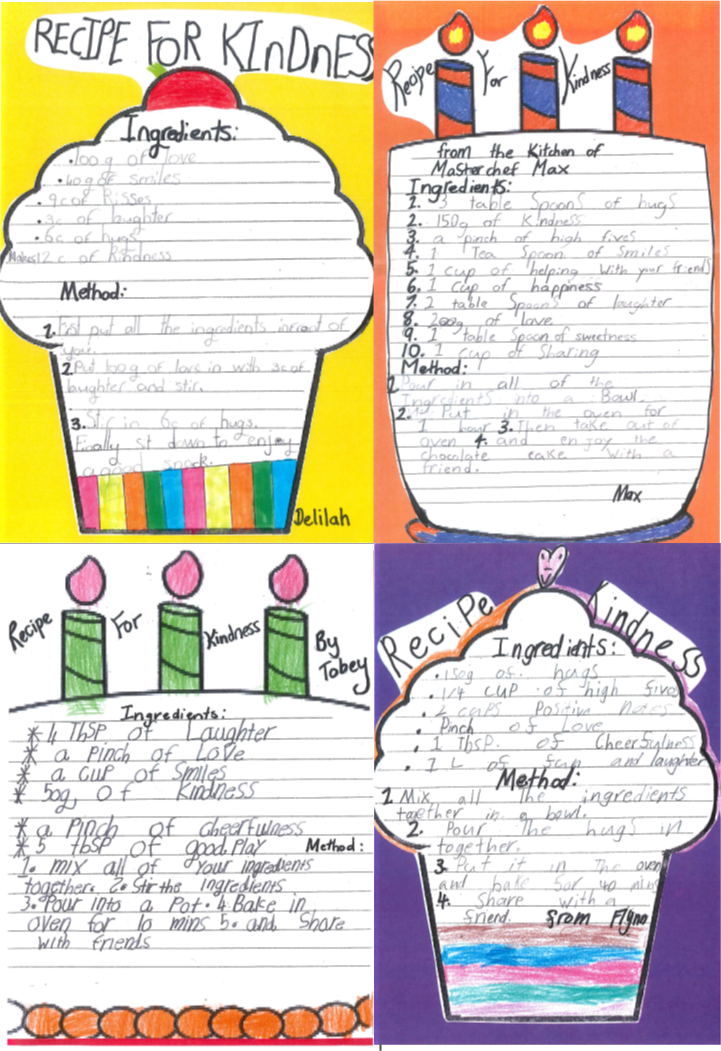 RECIPE FOR KInDnESS
Ingredients:
• 100g of love
• 40g of smiles
• 9c of kisses
• 3c of laughter
• 6c of hugs
Makes 12 c of kindness
Method:
1. First put all the ingredients infront of
you.
2. Put 100g of love in with 3c of
laughter and stir.
3. Stir in 6c of hugs.
Finally sit down to enjoy
a good snack.
Delilah
Recipe For Kindness
from the Kitchen of
Masterchef Max
Ingredients:
1. 3 table Spoons of hugs
2. 150g of Kindness
3. a pinch of high fives
4. 1 Tea Spoon of Smiles
5. 1 cup of helping with your friends
6. 1 cup of happiness
7. 2 table Spoons of laughter
8. 200g of love
9. 1 table Spoon of sweetness
10. 1 cup of Sharing
Method:
1. Pour in all of the
Ingredients into a Bowl.
2. Put in the oven for
1 hour 3. Then take out of
oven 4. and enjoy the
chocolate cake with a
friend.
Max
Recipe For Kindness By
Tobey
Ingredients:
* 4 Tbsp of Laughter
* a Pinch of Love
* a cup of Smiles
* 50g of Kindness
* a Pinch of cheerfulness
* 5 tbsp of good Play Method:
1. mix all of Your ingredients
together. 2. Stir the ingredients
3. Pour into a Pot. 4. Bake in
oven for 10 mins 5. and Share
with friends
Recipe Kindness
Ingredients:
• 150g of hugs
• 1/4 cup of high fives
• 2 cups Positive notes
• Pinch of Love
• 1 Tbsp. of Cheerfulness
• 1 L of fun and laughter
Method:
1. Mix all the ingredients
together in a bowl.
2. Pour the hugs in
together.
3. Put it in the oven
and bake for 40 mins
4. Share with a
friend. from Flynn